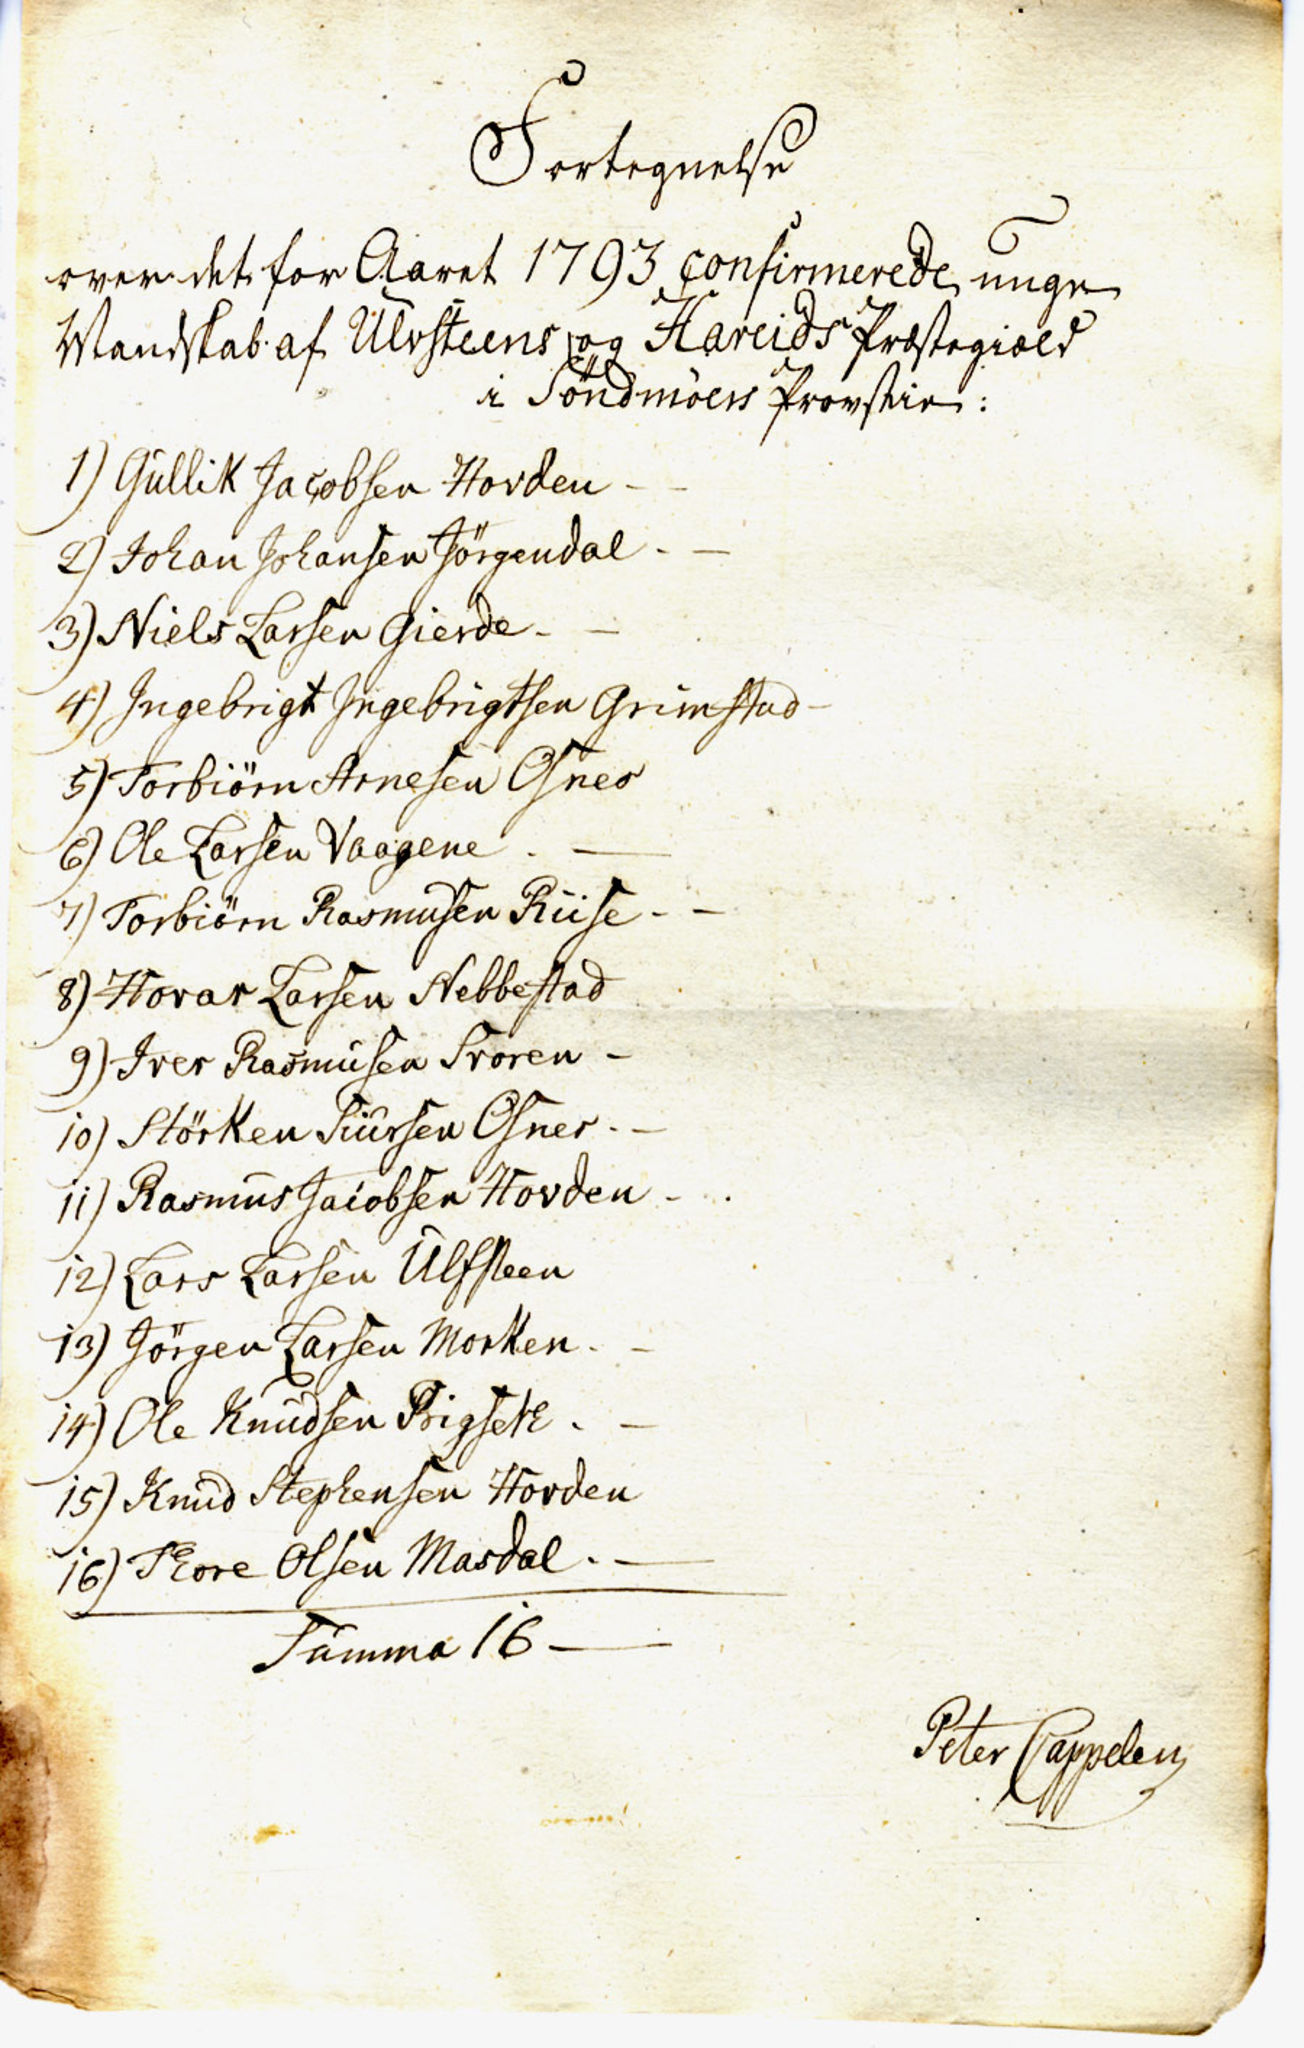 Fortegnelse
over det for Aaret 1793 confirmerede unge
Mandskab af Ulvsteens og Hareids Præstegield
i Söndmöers Provstie:
1) Gullik Jacobsen Hovden - -
2) Johan Johansen Jörgendal - -
3) Niels Larsen Gierde - -
4) Ingebrigt Ingebrigtsen Grimstad -
5) Torbiörn Arnesen Osnes
6) Ole Larsen Vaagene . -
7) Torbiörn Rasmusen Riise - -
8) Hovar Larsen Nebbestad
9) Iver Rasmusen Svoren -
10) Störken Siursen Osnes . -
11) Rasmus Jacobsen Hovden - .
12) Lars Larsen Ulfsteen
13) Jörgen Larsen Morken . -
14) Ole Knudsen Rigsetr . -
15) Knud Stephensen Hovden
16) Thore Olsen Masdal . -
Summa 16 -
Peter Cappelen